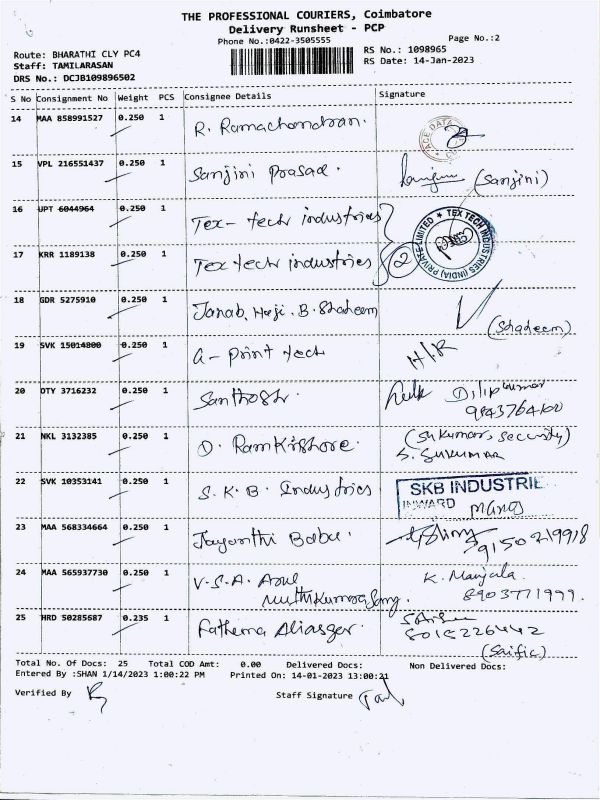 THE PROFESSIONAL COURIERS, Coimbatore
Delivery Runsheet - PCP
Phone No.:0422-3505555
Page No.:2
Route: BHARATHI CLY PC4
Staff: TAMILARASAN
DRS No.: DCJB109896502
RS No.: 1098965
RS Date: 14-Jan-2023
S No Consignment No Weight PCS Consignee Details Signature
14 MAA 858991527 0.250 1 R. Ramachandran.
15 VPL 216551437 0.250 1 Sanjini Prasad. (Sanjini)
16 UPT 6044964 0.250 1 Tex-tech industries
TEX TECH INDUSTRIES (INDIA) PRIVATE LIMITED
17 KRR 1189138 0.250 1 Tex tech industries 2
18 GDR 5275910 0.250 1 Janab. Haji. B. Shadeem (Shadeem)
19 SVK 15014800 0.250 1 a- print tech H/R
20 OTY 3716232 0.250 1 Santhosh. Dilipkumar
9943764100
21 NKL 3132385 0.250 1 D. Ramkishore. (Sukumar, security)
S. SUKUMAR
22 SVK 10353141 0.250 1 S.K.B. Industries SKB INDUSTRIE
INWARD
23 MAA 568334664 0.250 1 Jayanthi Babu. 9150219918
24 MAA 565937730 0.250 1 V.S.A. Arul K. Manjula.
8903771999.
25 HRD 50285687 0.235 1 Fathema Aliasger.
8015226442
(Saific)
Total No. Of Docs: 25 Total COD Amt: 0.00 Delivered Docs: Non Delivered Docs:
Entered By :SHAN 1/14/2023 1:00:22 PM Printed On: 14-01-2023 13:00:21
Verified By Staff Signature